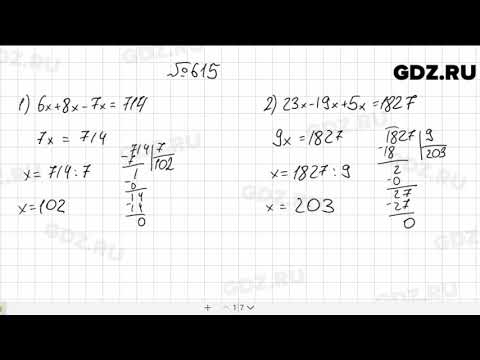 №615
GDZ.RU
1) 6x+8x-7x=714
7x = 714
x=714:7
x=102
714 7
-7 102
1
-0
14
-14
0
2) 23x-19x+5x=1827
9x=1827
x=1827:9
x=203
1827 9
-18 203
2
-0
27
-27
0
GDZ.RU
GDZ.RU
GDZ.RU
GDZ.RU
+ 1 7